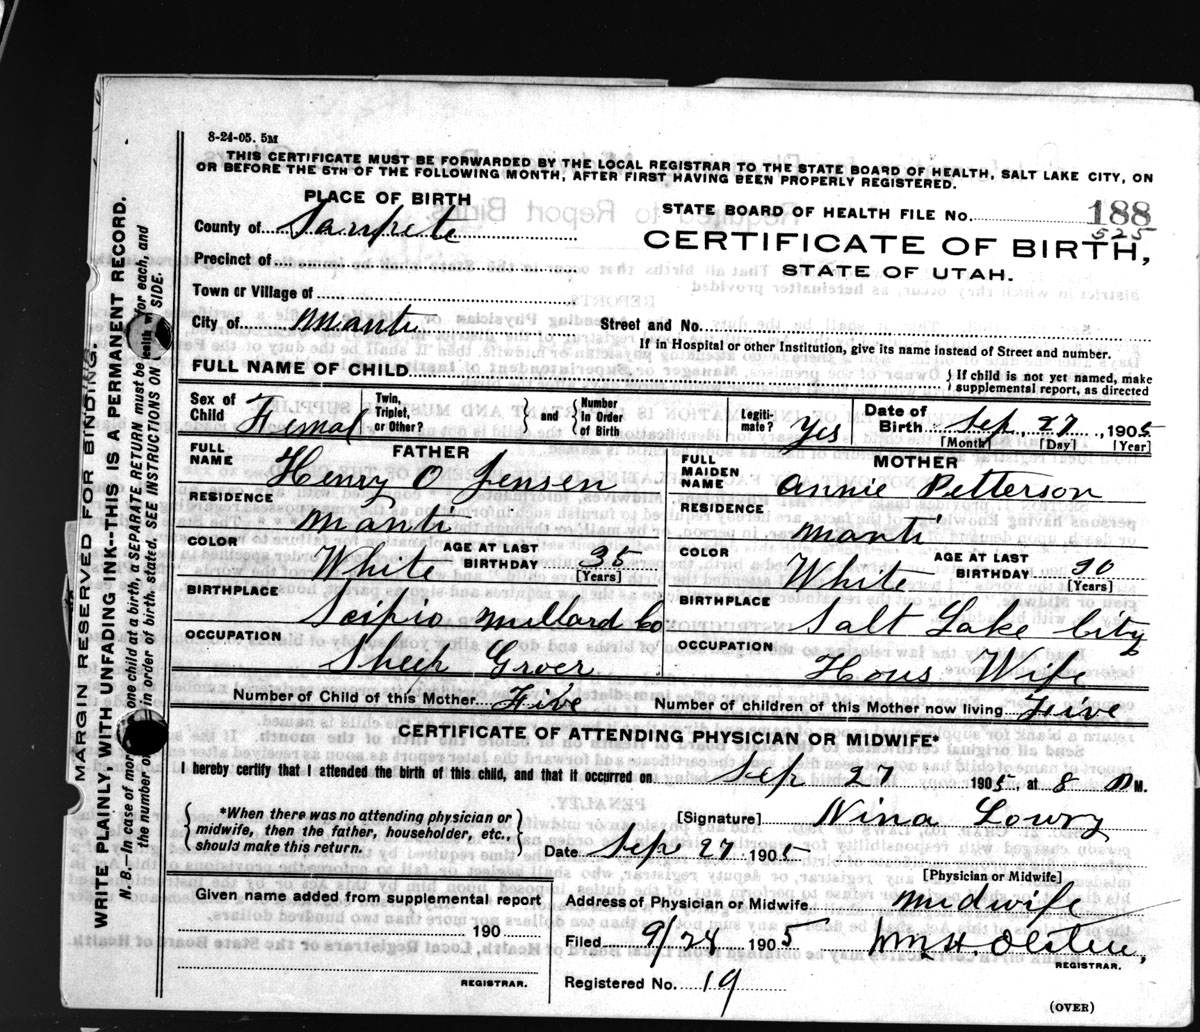 8-24-05. 5M
THIS CERTIFICATE MUST BE FORWARDED BY THE LOCAL REGISTRAR TO THE STATE BOARD OF HEALTH, SALT LAKE CITY, ON
OR BEFORE THE 5TH OF THE FOLLOWING MONTH, AFTER FIRST HAVING BEEN PROPERLY REGISTERED.
PLACE OF BIRTH
County of Sanpete
Precinct of
Town or Village of
City of Manti
STATE BOARD OF HEALTH FILE No. 188
525
CERTIFICATE OF BIRTH,
STATE OF UTAH.
Street and No.
If in Hospital or other Institution, give its name instead of Street and number.
FULL NAME OF CHILD
} If child is not yet named, make
supplemental report, as directed
Sex of Child Femal
Twin, Triplet, or Other?
} and {
Number In Order of Birth
Legiti-mate? Yes
Date of Birth Sep 27, 1905
[Month] [Day] [Year]
FATHER
FULL NAME Henry O Jensen
RESIDENCE Manti
COLOR White AGE AT LAST BIRTHDAY 35
[Years]
BIRTHPLACE Scipio Millard Co
OCCUPATION Sheep Groer
MOTHER
FULL MAIDEN NAME Annie Petterson
RESIDENCE Manti
COLOR White AGE AT LAST BIRTHDAY 30
[Years]
BIRTHPLACE Salt Lake City
OCCUPATION Hous Wife
Number of Child of this Mother Five Number of children of this Mother now living Five
CERTIFICATE OF ATTENDING PHYSICIAN OR MIDWIFE*
I hereby certify that I attended the birth of this child, and that it occurred on Sep 27 1905, at 8 M.
{ *When there was no attending physician or
midwife, then the father, householder, etc.,
should make this return. }
[Signature] Nina Lowry
Date Sep 27 1905
[Physician or Midwife]
Given name added from supplemental report
190
REGISTRAR.
Address of Physician or Midwife Midwife
Filed 9/28 1905
REGISTRAR.
Registered No. 19
(OVER)
MARGIN RESERVED FOR BINDING.
WRITE PLAINLY, WITH UNFADING INK--THIS IS A PERMANENT RECORD.
N. B.--In case of more one child at a birth, a SEPARATE RETURN must be for each, and
the number of in order of birth, stated. SEE INSTRUCTIONS ON SIDE.